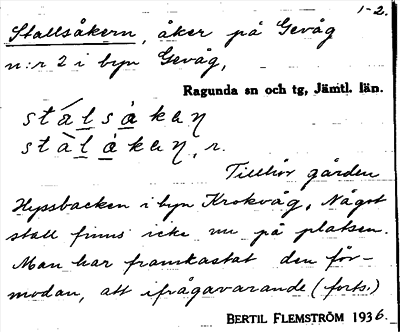 1-2.
Stallsåkern, åker på Gevåg
n:r 2 i byn Gevåg,
Ragunda sn och tg, Jämtl. län.
stálsåkaɳ
stàlåkaɳ, r.
Tillhör gården
Hyssbacken i byn Krokvåg. Något
stall finns icke nu på platsen.
Man har framkastat den för-
modan, att ifrågavarande (forts.)
BERTIL FLEMSTRÖM 1936.